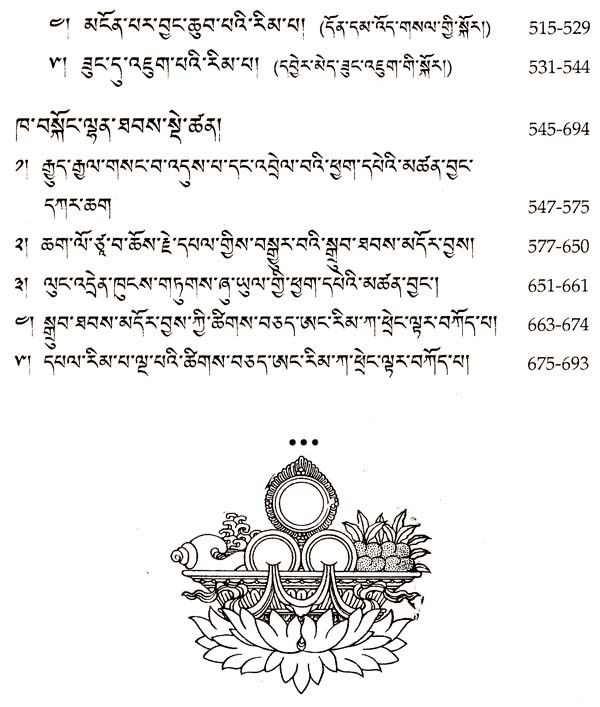 ༤། མངོན་པར་བྱང་ཆུབ་པའི་རིམ་པ། (དོན་དམ་འོད་གསལ་གྱི་སྐོར།) 515-529
༥། ཟུང་དུ་འཇུག་པའི་རིམ་པ། (དབྱེར་མེད་ཟུང་འཇུག་གི་སྐོར།) 531-544
ཁ་བསྐོང་ལྷན་ཐབས་སྡེ་ཚན། 545-694
༡། རྒྱུད་རྒྱལ་གསང་བ་འདུས་པ་དང་འབྲེལ་བའི་ཕྱག་དཔེའི་མཚན་བྱང་
དཀར་ཆག 547-575
༢། ཆག་ལོ་ཙཱ་བ་ཆོས་རྗེ་དཔལ་གྱིས་བསྒྱུར་བའི་སྒྲུབ་ཐབས་མདོར་བྱས། 577-650
༣། ལུང་འདྲེན་ཁུངས་གཏུགས་ཞུ་ཡུལ་གྱི་ཕྱག་དཔེའི་མཚན་བྱང་། 651-661
༤། སྒྲུབ་ཐབས་མདོར་བྱས་ཀྱི་ཚིགས་བཅད་ཨང་རིམ་ཀ་ཕྲེང་ལྟར་བཀོད་པ། 663-674
༥། དཔལ་རིམ་པ་ལྔ་པའི་ཚིགས་བཅད་ཨང་རིམ་ཀ་ཕྲེང་ལྟར་བཀོད་པ། 675-693